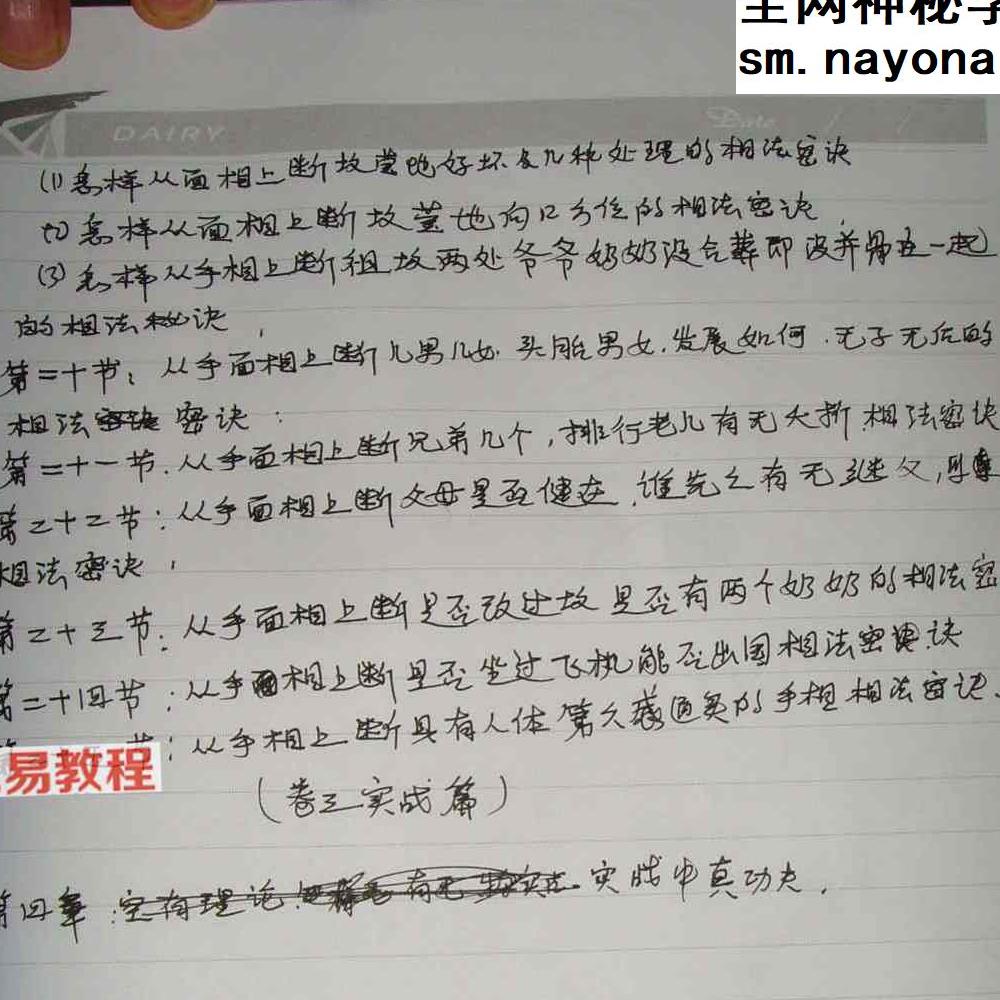 全网神秘学
sm.nayona
DAIRY
Date
(1)怎样从面相上断坟茔地好坏及几种处理的相法密诀
(2)怎样从面相上断坟茔地向口方位的相法密诀,
(3)怎样从手相上断祖坟两处爷爷奶奶没合葬即没并骨在一起
的相法秘诀,
第二十节:从手面相上断几男几女.头胎男女.发展如何.无子无后的
相法密诀:
第二十一节.从手面相上断兄弟几个,排行老几有无夭折.相法密诀
第二十二节:从手面相上断父母是否健在.谁先亡有无继父,
相法密诀,
第二十三节.从手面相上断是否改过坟是否有两个奶奶的相法密
第二十四节:从手面相上断是否坐过飞机能否出国相法密诀
节:从手相上断具有人体第六感通灵的手相相法密诀.
易教程
(卷三实战篇)
第四章:空有理论.实战中真功夫.